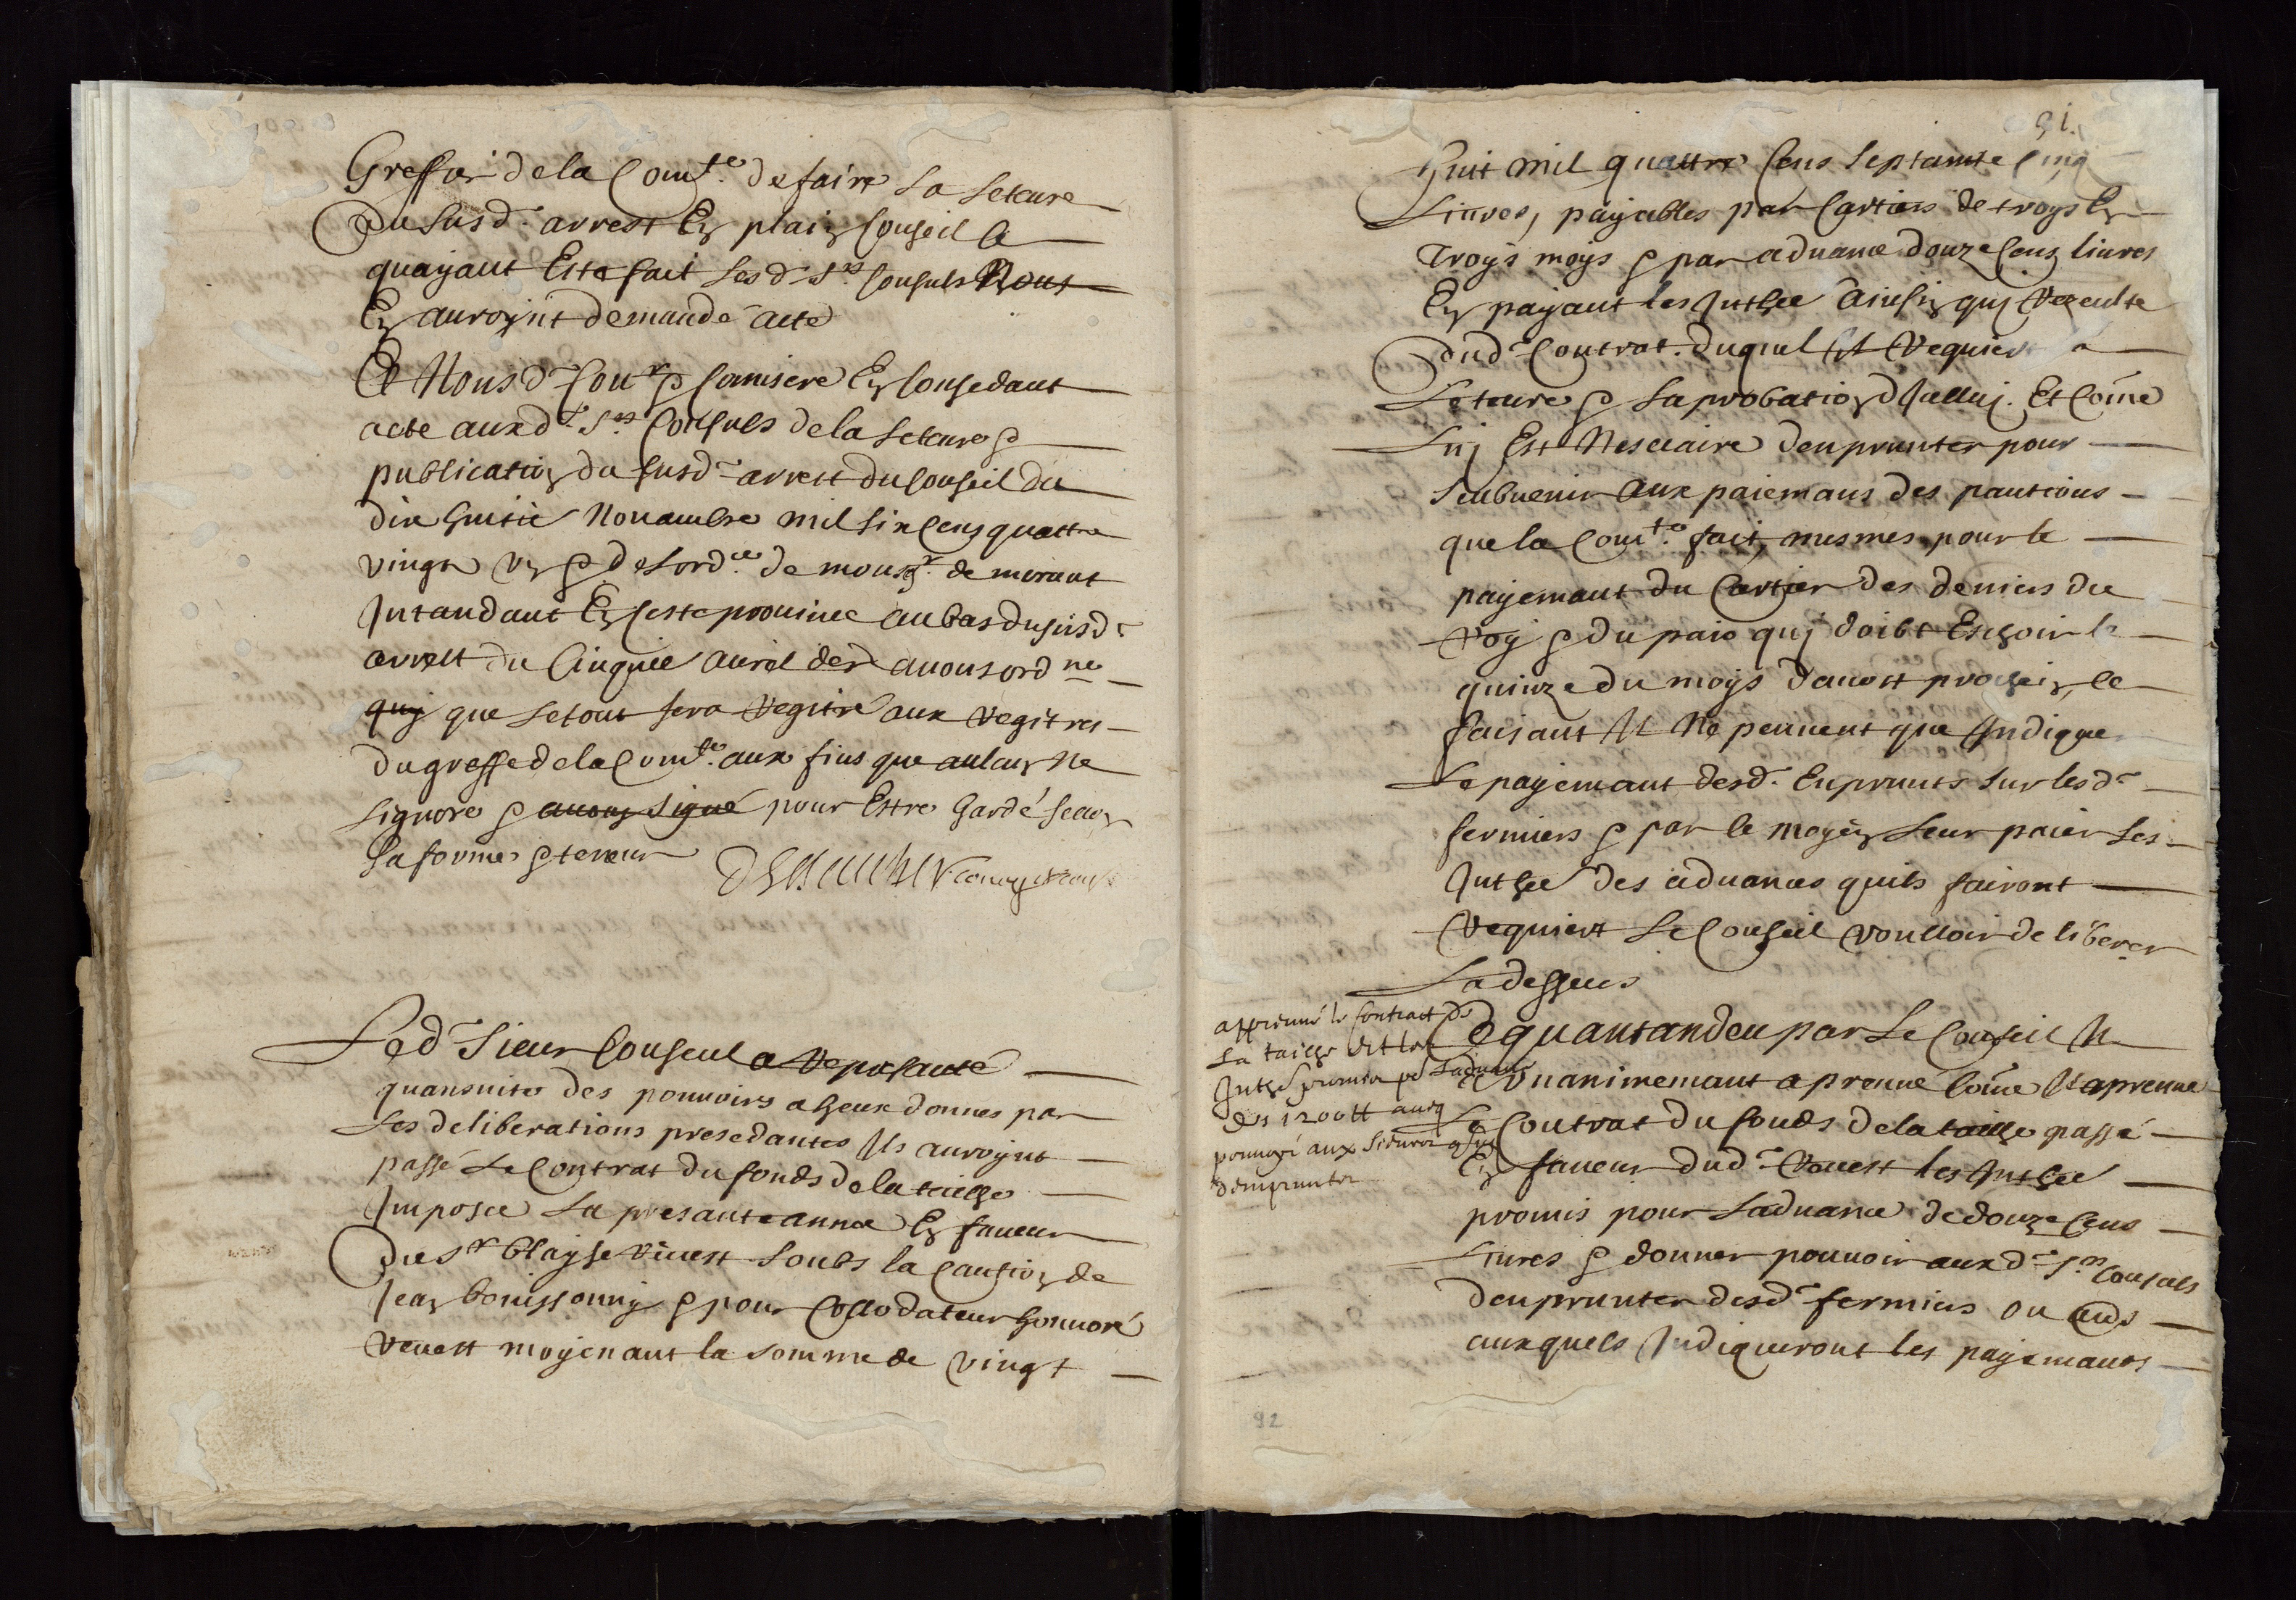 Greffier de la Com.te de faire la leteure
Du susd. arrest En plain Conseil Ce
quayant Este fait lesd. S.rs Consuls Nous
En auroyint demandé acte
Et Nousd. Con.r & Comisere En Consedant
acte auxd. S.rs Consuls de la leteure &
publication du susd. arrest du Conseil du
dix huitie Novambre mil six Cens quattre
vingts Un & de lord.ce de monsg.r de morant
Intandant En Ceste province au bas du susd.
arrest du Cinquie avril der avons ord.ne
quj que le tout sera Regitré aux Regitres
du greffe de la Com.te aux fins que aulcun Ne
Lignore & avons signé pour Estre Gardé selon
sa forme & teneur
Led. Sieur Conseul a Represanté
quansuite des pouvoirs a heux donnes par
Les deliberations presedantes Ils auroyint
passé Le Contrat du fonds de la tailhe
Imposee La presante annee En faveur
Du S.r Blayse Vevest soubs la Caution de
Jean bouissouny & pour Collodateur honnoré
Vevest moyenant la somme de vingt
91.
Huit mil quattre Cens septainte Cinq
Livres, payables par Cartiers de troys En
Troys moys & par advance douze Cens livres
En payant les Inthee ainsin quj Rezeulte
Dud. Contrat. duquel Il Requiert la
Leteure & Laprobation dJcelluj. Et Côme
Luj Est Nessaire denprunter pour
seubvenir aux paiemans des pantions
que la Com.te fait, mesmes pour le
payemant du Cartier des deniers du
Roy & du païs quj doibt Escheoir le
quinze du moys daoust prochein, ce
faisant Il Ne peuvent que Indiquer
Le payemant desd. Enprunts sur lesd.
fermiers & par le moyen Leur paier les
Inthee des advances quils fairont
Requiert Le Conseil voulloir deliberer
La dessus
apreuvé le Contract de
la tailhe et les
Inthe promis p.r Ladvance
des 1200 tt avec
pouvoir aux sieurs consuls
demprunter
Ce quantandeu par Le Conseil Il
a Unanimemant apreuvé Côme Il apreuve
Le Contrat du fonds de la tailhe passé
En faveur dud. Vevest les Inthee
promis pour Ladvance de douze Cens
Livres & donner pouvoir auxd. S.rs Consuls
denprunter desd. fermiers ou aus
auxquels Indiqueront les payemants
92